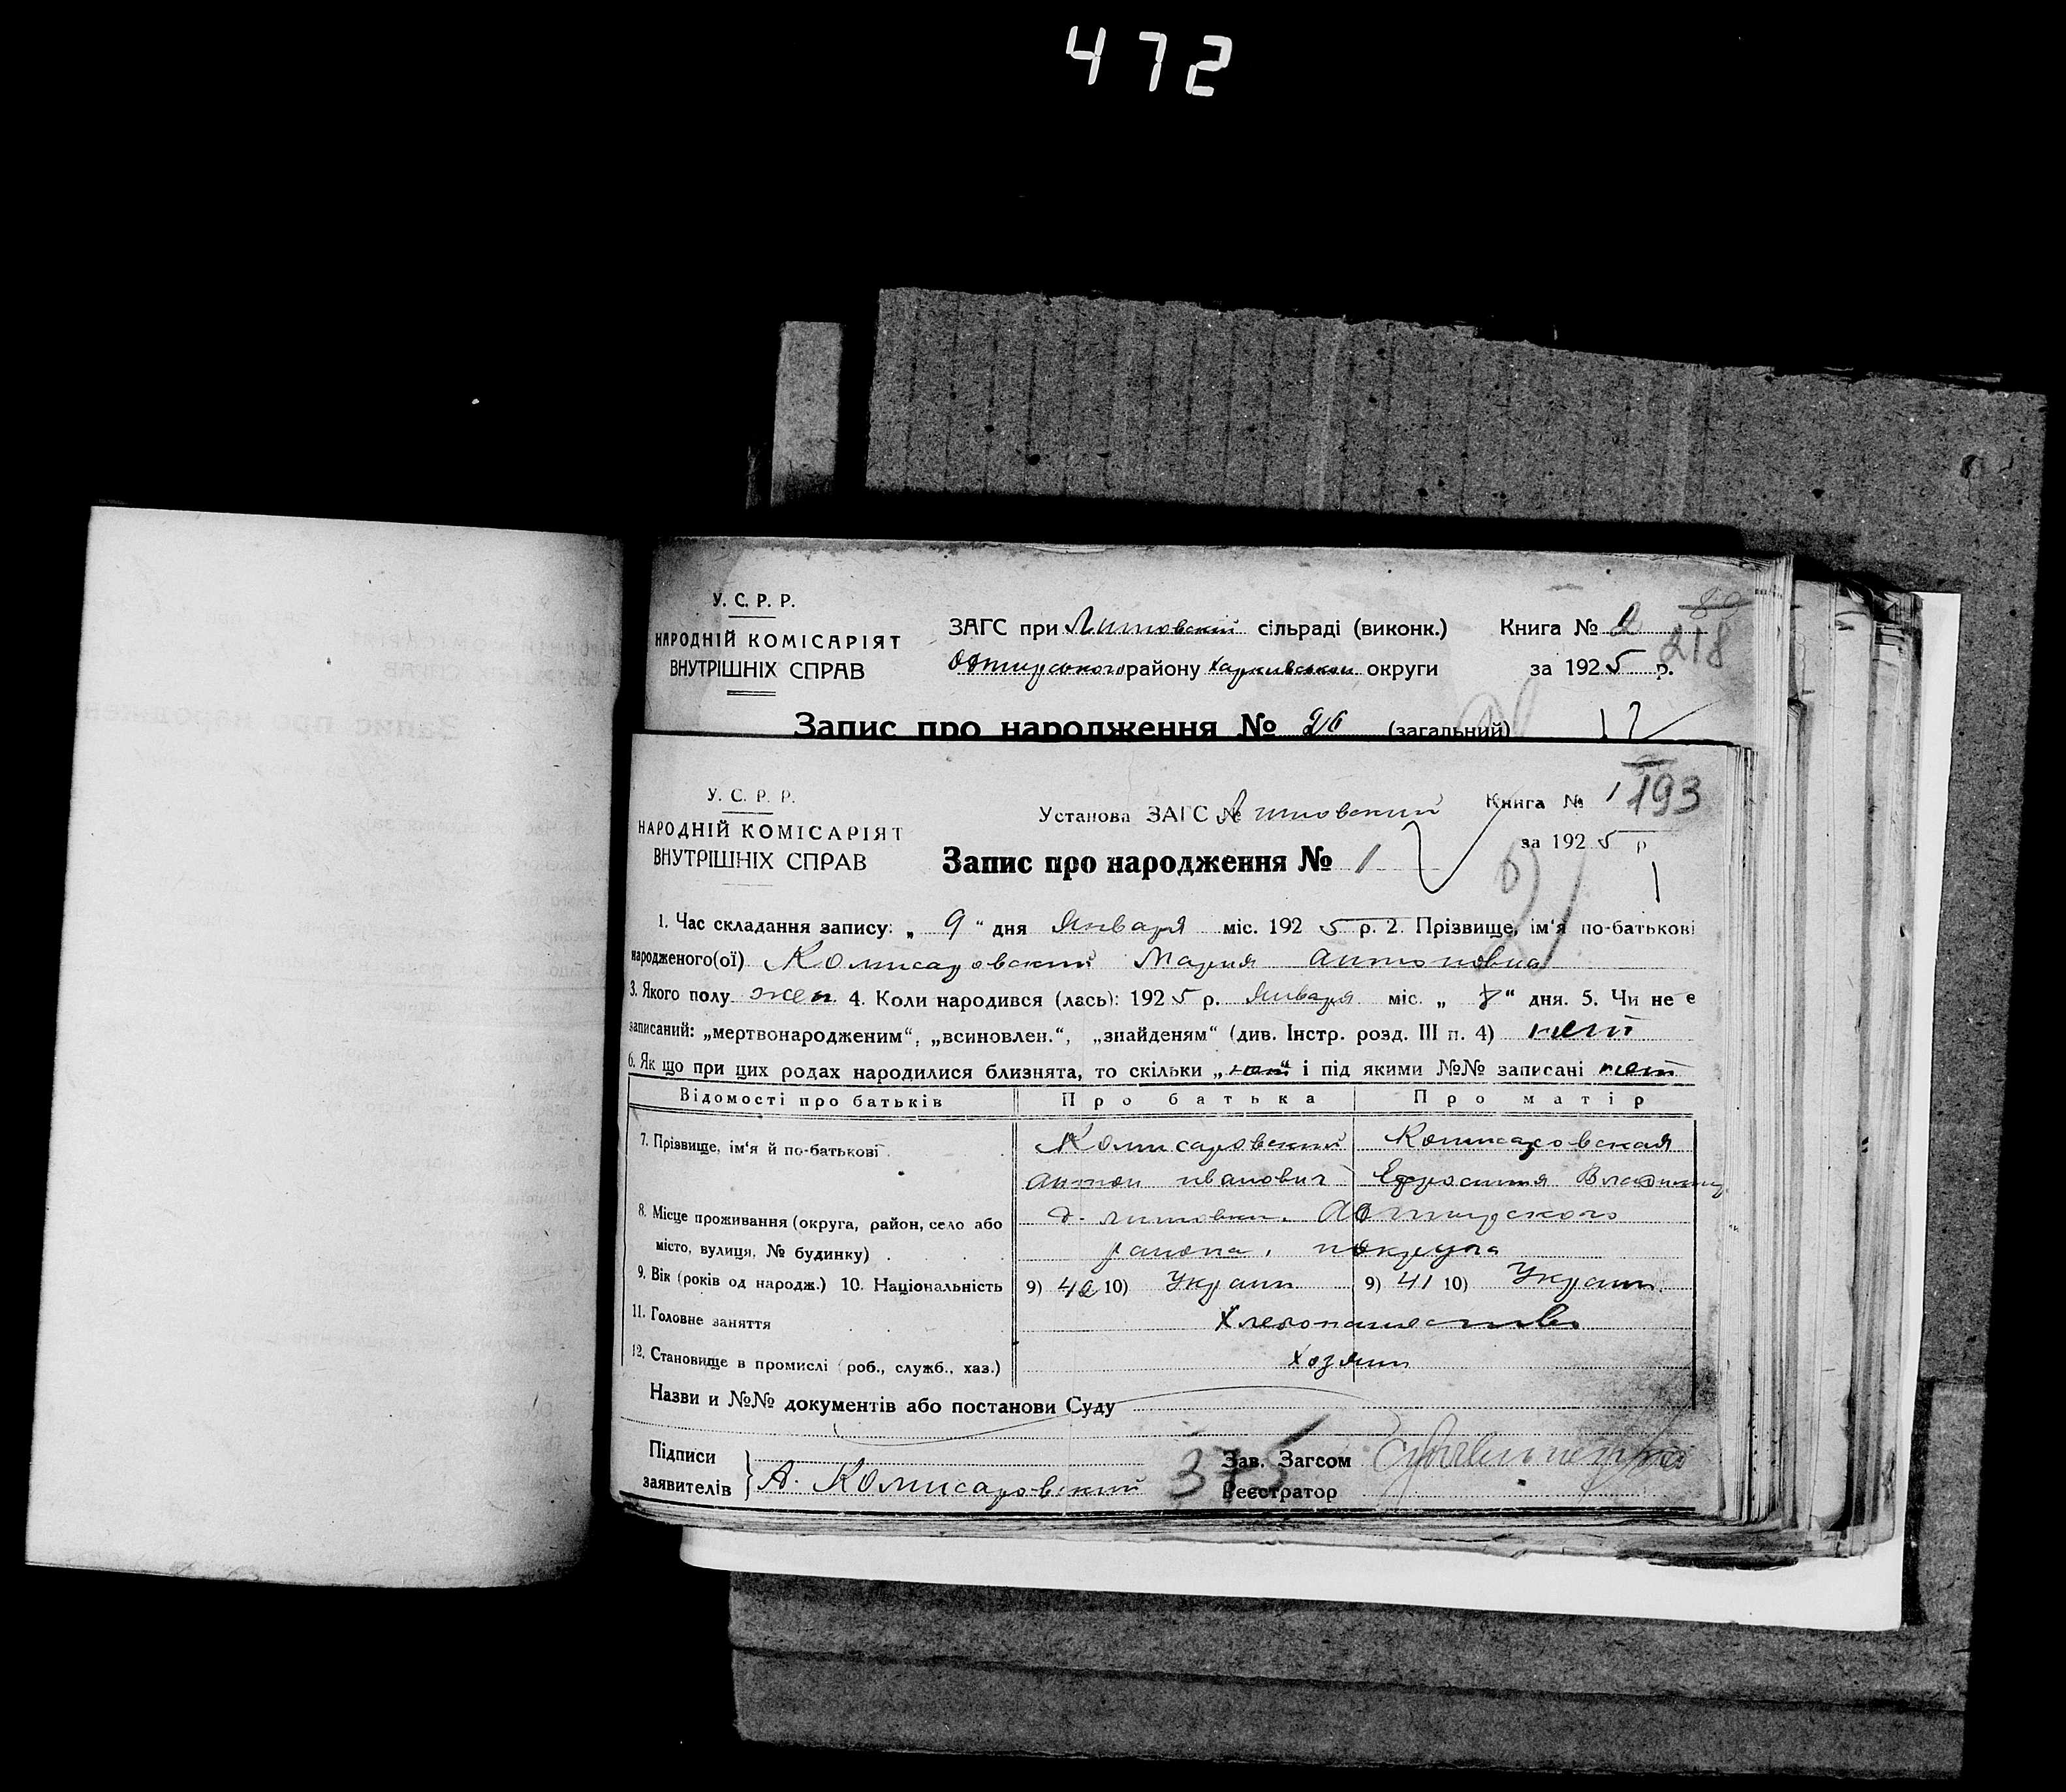 472
У. С. Р. Р.
НАРОДНІЙ КОМІСАРІЯТ
ВНУТРІШНІХ СПРАВ
ЗАГС при Литовскій сільраді (виконк.)
району Харкивськои округи
Книга № 2
218
за 1925 р.
Запис про народження № 26 (загальний)
У. С. Р. Р.
НАРОДНІЙ КОМІСАРІЯТ
ВНУТРІШНІХ СПРАВ
Установа ЗАГС Литовский
Книга № 1
193
за 1925 р
Запис про народження № 1
1. Час складання запису: „ 9 “ дня Января міс. 1925 р. 2. Прізвище, ім‘я по-батькові
народженого(ої) Комисаровский Мария Антоновна
3. Якого полу жен 4. Коли народився (лась): 1925 р. Января міс. „ 8 “ дня. 5. Чи не є
записаний: „мертвонародженим“, „всиновлен.“, „знайденям“ (див. Інстр. розд. III п. 4) нет
6. Як що при цих родах народилися близнята, то скільки „нет“ і під якими №№ записані нет
Відомості про батьків Про батька Про матір
7. Прізвище, ім‘я й по-батькові Комисаровский Комисаровская
Антон Иванович Ефросиния
8. Місце проживання (округа, район, село або д. Литовки.
місто, вулиця, № будинку) района,
9. Вік (років од народж.) 10. Національність 9) 42 10) Украин 9) 41 10) Украин.
11. Головне заняття Хлебопашество
12. Становище в промислі (роб., служб., хаз.) Хозяин
Назви и №№ документів або постанови Суду
Підписи
заявителів А. Комисаровский
375
Зав. Загсом
Реєстратор